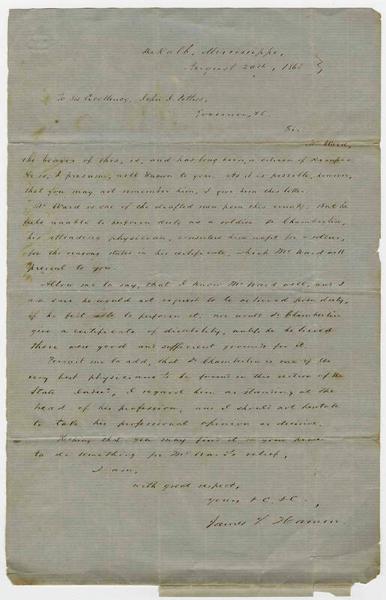 DeKalb, Mississippi,
August 20th, 186
To His Excellency, John J. Pettus,
Governor, &c.
Sir,
Mr Ward,
the bearer of this, is, and has long been, a citizen of Kemper.
He is, I presume, well known to you. As it is possible, however,
that you may not remember him, I give him this letter.
Mr Ward is one of the drafted men from this county. But he
feels unable to perform duty as a soldier. Dr Chamberlin,
his attending physician, considers him unfit for a soldier,
for the reasons stated in his certificate, which Mr Ward will
present to you.
Allow me to say, that I know Mr Ward well, and I
am sure he would not request to be relieved from duty,
if he felt able to perform it, nor would Dr Chamberlin
give a certificate of disability, unless he believed
there were good and sufficient grounds for it.
Permit me to add, that Dr Chamberlin is one of the
very best physicians to be found in this section of the
State. Indeed, I regard him as standing at the
head of his profession, and I should not hesitate
to take his professional opinion as decisive.
Hoping that you may find it in your power
to do something for Mr Ward's relief,
I am,
with great respect,
Yours &C. &C.,
James S. Hamm